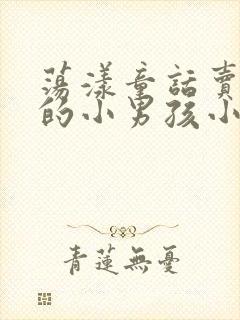 荡漾童話賣
的小男孩小
青蓮無憂